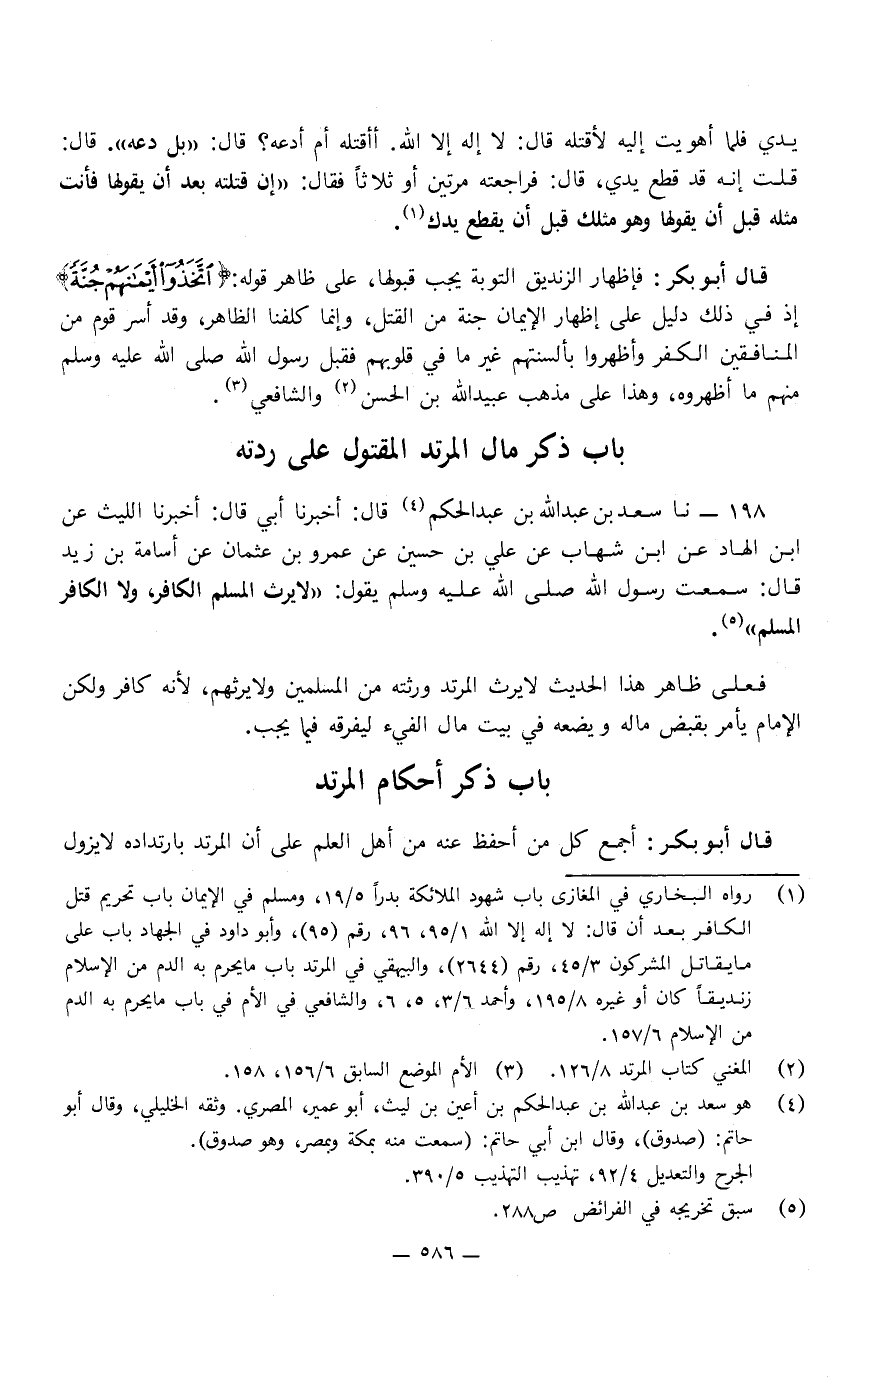 يدي فلما أهويت إليه لأقتله قال: لا إله إلا الله. أأقتله أم أدعه؟ قال: «بل دعه». قال:
قلت إنه قد قطع يدي، قال: فراجعته مرتين أو ثلاثاً فقال: «إن قتلته بعد أن يقولها فأنت
مثله قبل أن يقولها وهو مثلك قبل أن يقطع يدك(١).
قال أبو بكر: فإظهار الزنديق التوبة يجب قبولها، على ظاهر قوله: ﴿ٱتَّخَذُوٓا۟ أَيْمَـٰنَهُمْ جُنَّةً﴾
إذ في ذلك دليل على إظهار الإيمان جنة من القتل، وإنما كلفنا الظاهر، وقد أسر قوم من
المنافقين الكفر وأظهروا بألسنتهم غير ما في قلوبهم فقبل رسول الله صلى الله عليه وسلم
منهم ما أظهروه، وهذا على مذهب عبيدالله بن الحسن(٢) والشافعي(٣).
باب ذكر مال المرتد المقتول على ردته
١٩٨ — نا سعد بن عبدالله بن عبدالحكم(٤) قال: أخبرنا أبي قال: أخبرنا الليث عن
ابن الهاد عن ابن شهاب عن علي بن حسين عن عمرو بن عثمان عن أسامة بن زيد
قال: سمعت رسول الله صلى الله عليه وسلم يقول: «لايرث المسلم الكافر، ولا الكافر
المسلم»(٥).
فعلى ظاهر هذا الحديث لايرث المرتد ورثته من المسلمين ولايرثهم، لأنه كافر ولكن
الإمام يأمر بقبض ماله ويضعه في بيت مال الفيء ليفرقه فيما يجب.
باب ذكر أحكام المرتد
قال أبو بكر: أجمع كل من أحفظ عنه من أهل العلم على أن المرتد بارتداده لايزول
(١) رواه البخاري في المغازى باب شهود الملائكة بدراً ١٩/٥، ومسلم في الإيمان باب تحريم قتل
الكافر بعد أن قال: لا إله إلا الله ٩٥/١، ٩٦، رقم (٩٥)، وأبو داود في الجهاد باب على
مايقاتل المشركون ٤٥/٣، رقم (٢٦٤٤)، والبيهقي في المرتد باب مايحرم به الدم من الإسلام
زنديقاً كان أو غيره ١٩٥/٨، وأحمد ٣/٦، ٥، ٦، والشافعي في الأم في باب مايحرم به الدم
من الإسلام ١٥٧/٦.
(٢) المغني كتاب المرتد ١٢٦/٨. (٣) الأم الموضع السابق ١٥٦/٦، ١٥٨.
(٤) هو سعد بن عبدالله بن عبدالحكم بن أعين بن ليث، أبو عمير، المصري. وثقه الخليلي، وقال أبو
حاتم: (صدوق)، وقال ابن أبي حاتم: (سمعت منه بمكة وبمصر، وهو صدوق).
الجرح والتعديل ٩٢/٤، تهذيب التهذيب ٣٩٠/٥.
(٥) سبق تخريجه في الفرائض ص٢٨٨.
— ٥٨٦ —